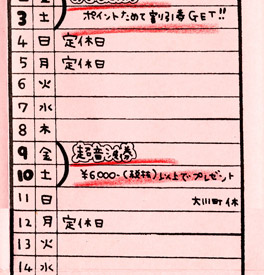 2 金
3 土 ポイントためて割引券GET!!
4 日 定休日
5 月 定休日
6 火
7 水
8 木
9 金 超音波券
10 土 ¥6000-(税抜)以上でプレゼント
11 日 大川町休
12 月 定休日
13 火
14 水